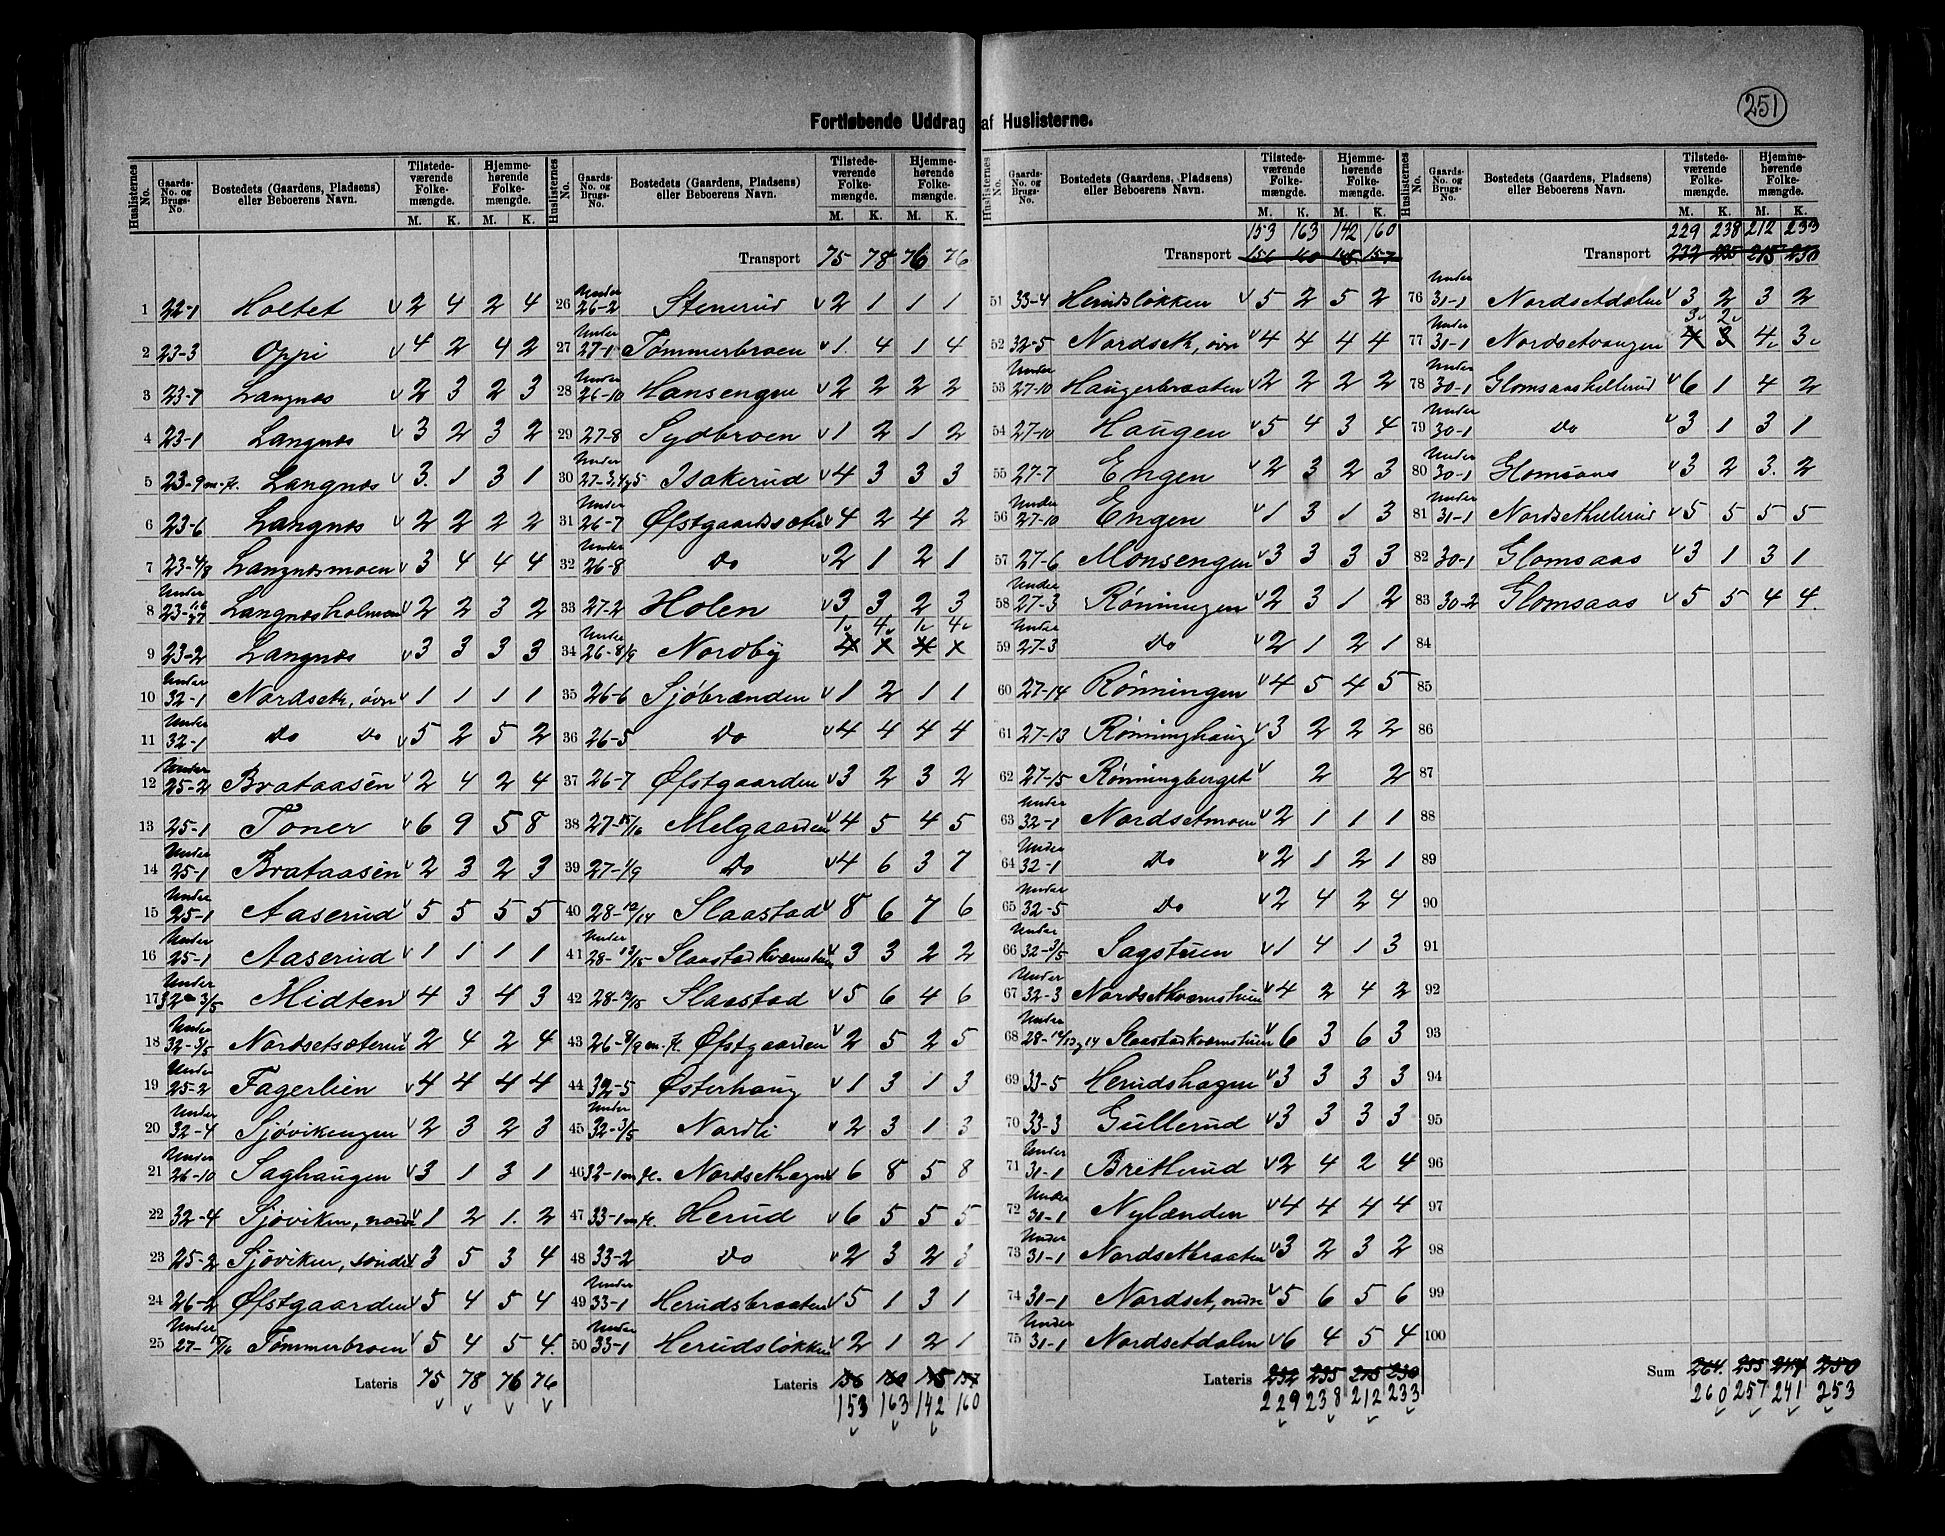 251
Fortløbende Uddrag af Huslisterne.
Huslisternes No. | Gaards-No. og Brugs-No. | Bostedets (Gaardens, Pladsens) eller Beboerens Navn. | Tilstedeværende Folkemængde. M. K. | Hjemmehørende Folkemængde. M. K.
1 22-1 Holtet 2 4 2 4
2 23-3 Oppi 4 2 4 2
3 23-7 Langnæs 2 3 2 3
4 23-1 Langnæs 3 2 3 2
5 23-9 m. fl. Langnæs 3 1 3 1
6 23-6 Langnæs 2 2 2 2
7 23-4/8 Langnæsmoen 3 4 4 4
8 Under Langnæsholmen 2 2 3 2
9 23-2 Langnæs 3 3 3 3
10 Under 32-1 Nordseth, övre 1 1 1 1
11 Under 32-1 Do Do 5 2 5 2
12 Under 25-2 Brataasen 2 4 2 4
13 25-1 Toner 6 9 5 8
14 Under 25-1 Brataasen 2 3 2 3
15 Under 25-1 Aaserud 5 5 5 5
16 Under 25-1 Aaserud 1 1 1 1
17 Under 32-3/5 Midten 4 3 4 3
18 Under 32-3/5 Nordsetsæteren 2 4 2 4
19 Under 25-2 Fagerlien 4 4 4 4
20 Under 32-4 Sjövikengen 2 3 2 3
21 Under 26-10 Saghaugen 3 1 3 1
22 32-4 Sjöviken, nordre 1 2 1 2
23 25-2 Sjöviken, söndre 3 5 3 4
24 26-2 Øfstgaarden 5 4 5 4
25 Under 27-15/16 Tømmerbroen 5 4 5 4
Lateris 75 78 76 76
Transport 75 78 76 76
26 Under 26-2 Stenerud 2 1 1 1
27 Under 27-1 Tømmerbroen 1 4 1 4
28 Under 26-10 Hansengen 2 2 2 2
29 27-8 Sydbroen 1 2 1 2
30 Under 27-3,4 og 5 Isakerud 4 3 3 3
31 Under 26-7 Øfstgaardssæter 4 2 4 2
32 Under 26-8 Do 2 1 2 1
33 27-2 Holen 3 3 2 3
34 Under 26-8/9 Nordby 1 4 1 4
35 26-6 Sjöbrænden 1 2 1 1
36 26-5 Do 4 4 4 4
37 26-7 Øfstgaarden 3 2 3 2
38 27-15/16 Melgaarden 4 5 4 5
39 27-1/9 Do 4 6 3 7
40 28-12/14 Slaastad 8 6 7 6
41 Under 28-13/15 Slaastadkværnstuen 3 3 2 2
42 28-13/15 Slaastad 5 6 4 6
43 26-8/9 m. fl. Øfstgaarden 2 5 2 5
44 32-5 Østerhaug 1 3 1 3
45 Under 32-3/5 Nordli 2 3 1 3
46 32-1 m fl. Nordsethagen 6 8 5 8
47 33-1 m fl. Herud 6 5 5 5
48 33-2 Do 2 3 2 3
49 Under 33-1 Herudsbraaten 5 1 3 1
50 Under 33-1 Herudsløkken 2 1 2 1
Lateris 156 160 145 157
153 163 142 160
153 163 142 160
Transport 156 160 145 157
51 33-4 Herudsløkken 5 2 5 2
52 32-5 Nordseth, övre 4 4 4 4
53 Under 27-10 Haugerbraaten 2 2 2 2
54 27-10 Haugen 5 4 3 4
55 27-7 Engen 2 3 2 3
56 Under 27-10 Engen 1 3 1 3
57 27-6 Monsengen 3 3 3 3
58 Under 27-3 Rønningen 2 3 1 2
59 Under 27-3 Do 2 1 2 1
60 27-14 Rønningen 4 5 4 5
61 27-13 Rønninghaug 3 2 2 2
62 27-15 Rønningberget 2 2
63 Under 32-1 Nordsetmoen 2 1 1 1
64 Under 32-1 Do 2 1 2 1
65 Under 32-5 Do 2 4 2 4
66 Under 32-3/5 Sagstuen 1 4 1 3
67 Under 32-3 Nordsetkværnstuen 4 2 4 2
68 Under Slaastadkværnstuen 6 3 6 3
69 33-5 Herudshagen 3 3 3 3
70 33-3 Gullerud 3 3 3 3
71 Under 31-1 Bretterud 2 4 2 4
72 Under 30-1 Nylænden 4 4 4 4
73 Under 31-1 Nordsetbraaten 3 2 3 2
74 31-1 Nordset, nedre 5 6 5 6
75 Under 31-1 Nordsetdalen 6 4 5 4
Lateris 232 235 215 230
229 238 212 233
229 238 212 233
Transport 232 235 215 230
76 Under 31-1 Nordsetdalen 3 2 3 2
77 Under 31-1 Nordsetvangen 4 3 3 2 4 3
78 Under 30-1 Glomsaashellerud 6 1 4 2
79 Under 30-1 Do 3 1 3 1
80 Under 30-1 Glomsaas 3 2 3 2
81 Under 31-1 Nordsethellerud 5 5 5 5
82 30-1 Glomsaas 3 1 3 1
83 30-2 Glomsaas 5 5 4 4
84
85
86
87
88
89
90
91
92
93
94
95
96
97
98
99
100
Sum 264 255 244 250
260 257 241 253